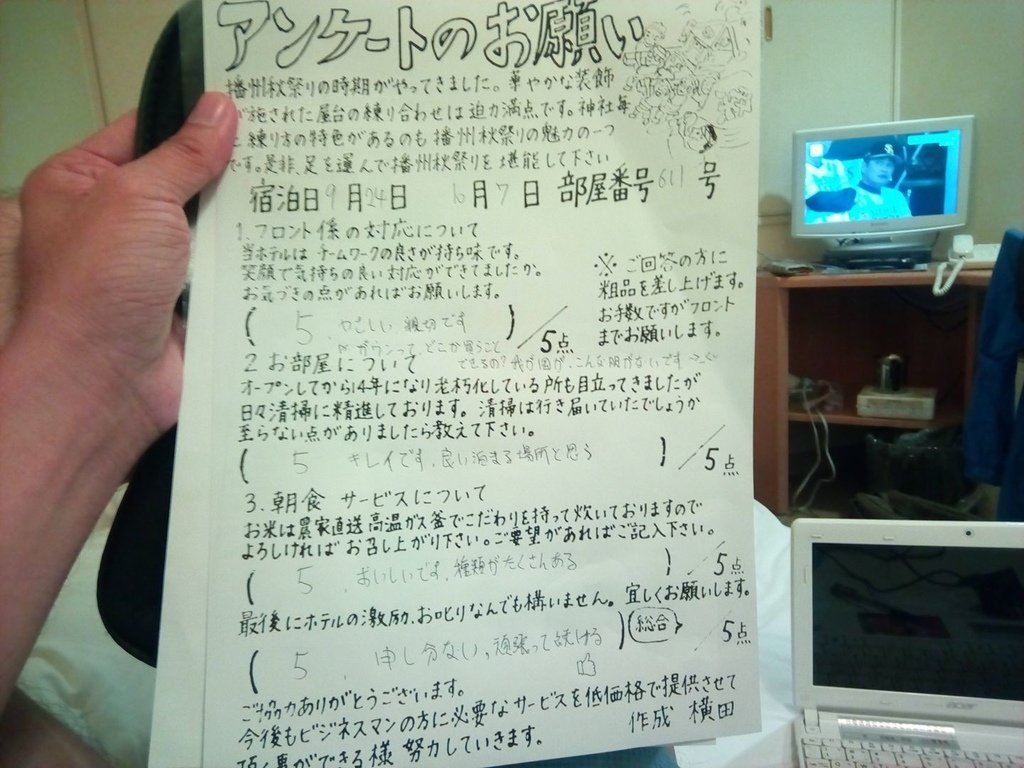 アンケートのお願い
播州秋祭りの時期がやってきました。華やかな装飾
が施された屋台の練り合わせは迫力満点です。神社毎
に練り方の特色があるのも播州秋祭りの魅力の一つ
です。是非、足を運んで播州秋祭りを堪能して下さい
宿泊日9月24日 10月7日 部屋番号611号
1.フロント係の対応について
当ホテルはチームワークの良さが持ち味です。
笑顔で気持ちの良い対応ができてましたか。
お気づきの点があればお願いします。
※ご回答の方に
粗品を差し上げます。
お手数ですがフロント
までお願いします。
( 5 やさしい 親切です ) /5点
どこか買うこと
できるの?我が国が、こんな服がないです
2 お部屋について
オープンしてから14年になり老朽化している所も目立ってきましたが
日々清掃に精進しております。清掃は行き届いていたでしょうか
至らない点がありましたら教えて下さい。
( 5 キレイです、良い泊まる場所と思う ) /5点
3.朝食 サービスについて
お米は農家直送高温ガス釜でこだわりを持って炊いておりますので
よろしければお召し上がり下さい。ご要望があればご記入下さい。
( 5 おいしいです、種類がたくさんある ) /5点
最後にホテルの激励、お叱りなんでも構いません。宜しくお願いします。
( 5 申し分ない、頑張って続ける ) 総合 /5点
ご協力ありがとうございます。
今後もビジネスマンの方に必要なサービスを低価格で提供させて
頂く事ができる様 努力していきます。
作成 横田
acer